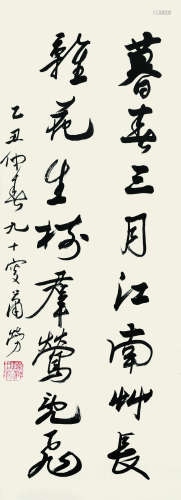 暮春三月江南艸長
雜花生樹群鶯乱飛
乙丑仲春九十叟蕭勞